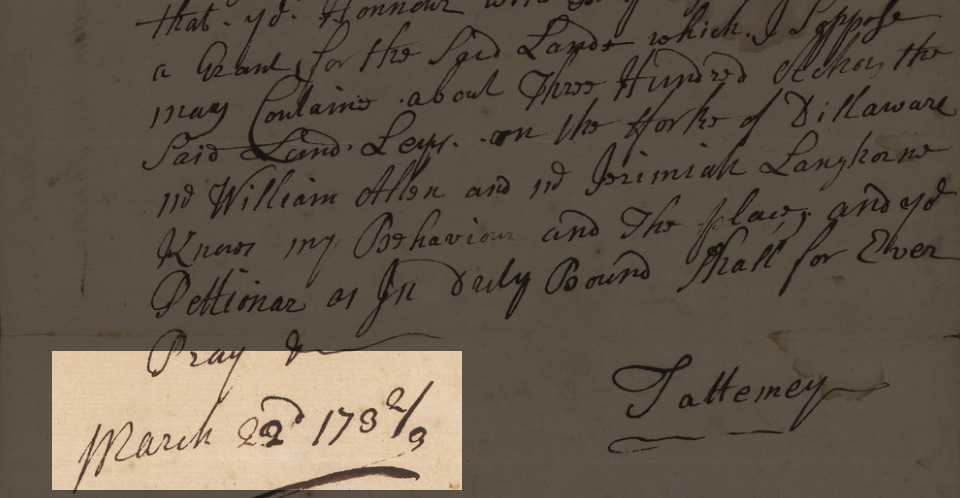 that. yd. Honnour
a Grant for the Said Lands which. I Soppose
may Contains about Three Hundred Ackors the
Said Land. Leys. on the Forks of Dillaware
md William Allen and md Jerimiah Langhorne
Knows my Behaviour and the place, and yd
Pettionar as In duly Bound Shall for Ever
Pray &
Tattemey
March 22d 173 2/3